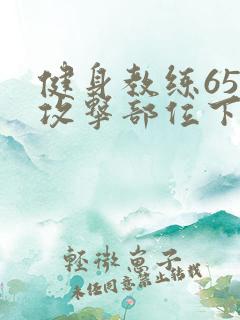 健身教练65
攻撃部位下
軽微恵子
未经同意禁止转载